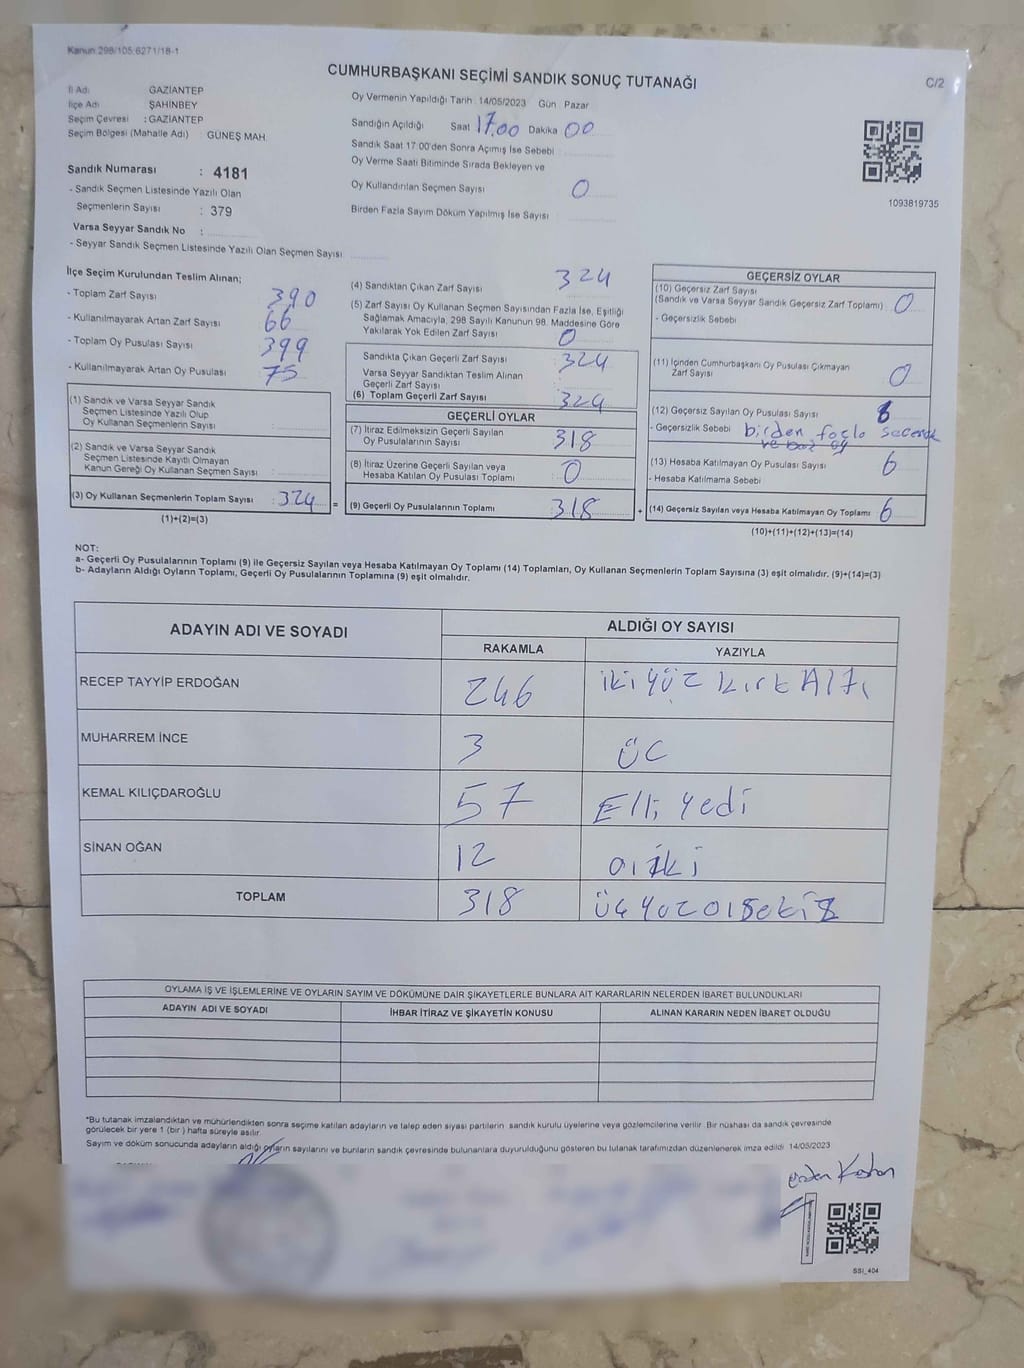 Kanun:298/105:6271/18-1
CUMHURBAŞKANI SEÇİMİ SANDIK SONUÇ TUTANAĞI
C/2
İl Adı GAZİANTEP
İlçe Adı ŞAHİNBEY
Seçim Çevresi : GAZİANTEP
Seçim Bölgesi (Mahalle Adı) : GÜNEŞ MAH.
Sandık Numarası : 4181
- Sandık Seçmen Listesinde Yazılı Olan
Seçmenlerin Sayısı : 379
Varsa Seyyar Sandık No :
- Seyyar Sandık Seçmen Listesinde Yazılı Olan Seçmen Sayısı
Oy Vermenin Yapıldığı Tarih : 14/05/2023 Gün Pazar
Sandığın Açıldığı Saat 17.00 Dakika 00
Sandık Saat 17:00'den Sonra Açımış İse Sebebi
Oy Verme Saati Bitiminde Sırada Bekleyen ve
Oy Kullandırılan Seçmen Sayısı 0
Birden Fazla Sayım Döküm Yapılmış İse Sayısı
1093819735
İlçe Seçim Kurulundan Teslim Alınan;
- Toplam Zarf Sayısı 390
- Kullanılmayarak Artan Zarf Sayısı 66
- Toplam Oy Pusulası Sayısı 399
- Kullanılmayarak Artan Oy Pusulası 75
(1) Sandık ve Varsa Seyyar Sandık
Seçmen Listesinde Yazılı Olup
Oy Kullanan Seçmenlerin Sayısı
(2) Sandık ve Varsa Seyyar Sandık
Seçmen Listesinde Kayıtlı Olmayan
Kanun Gereği Oy Kullanan Seçmen Sayısı
(3) Oy Kullanan Seçmenlerin Toplam Sayısı : 324 =
(1)+(2)=(3)
(4) Sandıktan Çıkan Zarf Sayısı 324
(5) Zarf Sayısı Oy Kullanan Seçmen Sayısından Fazla İse, Eşitliği
Sağlamak Amacıyla, 298 Sayılı Kanunun 98. Maddesine Göre
Yakılarak Yok Edilen Zarf Sayısı 0
Sandıkta Çıkan Geçerli Zarf Sayısı 324
Varsa Seyyar Sandıktan Teslim Alınan
Geçerli Zarf Sayısı
(6) Toplam Geçerli Zarf Sayısı 324
GEÇERLİ OYLAR
(7) İtiraz Edilmeksizin Geçerli Sayılan
Oy Pusulalarının Sayısı 318
(8) İtiraz Üzerine Geçerli Sayılan veya
Hesaba Katılan Oy Pusulası Toplamı 0
(9) Geçerli Oy Pusulalarının Toplamı : 318 +
GEÇERSİZ OYLAR
(10) Geçersiz Zarf Sayısı
(Sandık ve Varsa Seyyar Sandık Geçersiz Zarf Toplamı) 0
- Geçersizlik Sebebi
(11) İçinden Cumhurbaşkanı Oy Pusulası Çıkmayan
Zarf Sayısı 0
(12) Geçersiz Sayılan Oy Pusulası Sayısı
- Geçersizlik Sebebi birden foclo
(13) Hesaba Katılmayan Oy Pusulası Sayısı 6
- Hesaba Katılmama Sebebi
(14) Geçersiz Sayılan veya Hesaba Katılmayan Oy Toplamı 6
(10)+(11)+(12)+(13)=(14)
NOT:
a- Geçerli Oy Pusulalarının Toplamı (9) ile Geçersiz Sayılan veya Hesaba Katılmayan Oy Toplamı (14) Toplamları, Oy Kullanan Seçmenlerin Toplam Sayısına (3) eşit olmalıdır. (9)+(14)=(3)
b- Adayların Aldığı Oyların Toplamı, Geçerli Oy Pusulalarının Toplamına (9) eşit olmalıdır.
ADAYIN ADI VE SOYADI
ALDIĞI OY SAYISI
RAKAMLA YAZIYLA
RECEP TAYYİP ERDOĞAN 246 iki yüz kırk Altı
MUHARREM İNCE 3 üc
KEMAL KILIÇDAROĞLU 57 Elli yedi
SİNAN OĞAN 12 oniki
TOPLAM 318 üç yüz onsekiz
OYLAMA İŞ VE İŞLEMLERİNE VE OYLARIN SAYIM VE DÖKÜMÜNE DAİR ŞİKAYETLERLE BUNLARA AİT KARARLARIN NELERDEN İBARET BULUNDUKLARI
ADAYIN ADI VE SOYADI İHBAR İTİRAZ VE ŞİKAYETİN KONUSU ALINAN KARARIN NEDEN İBARET OLDUĞU
*Bu tutanak imzalandıktan ve mühürlendikten sonra seçime katılan adayların ve talep eden siyasi partilerin sandık kurulu üyelerine veya gözlemcilerine verilir. Bir nüshası da sandık çevresinde
görülecek bir yere 1 (bir) hafta süreyle asılır.
Sayım ve döküm sonucunda adayların aldığı oyların sayılarını ve bunların sandık çevresinde bulunanlara duyurulduğunu gösteren bu tutanak tarafımızdan düzenlenerek imza edildi 14/05/2023
SSİ_404